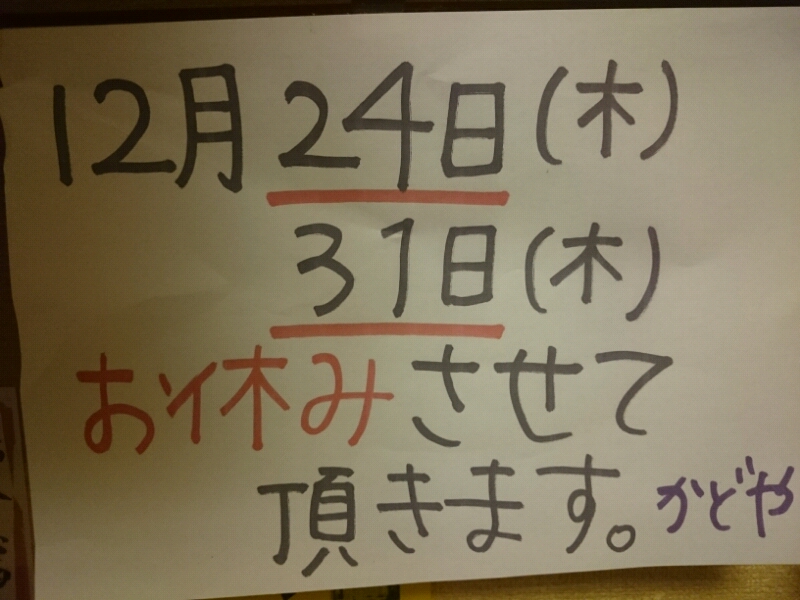 12月24日(木)
31日(木)
お休みさせて
頂きます。かどや